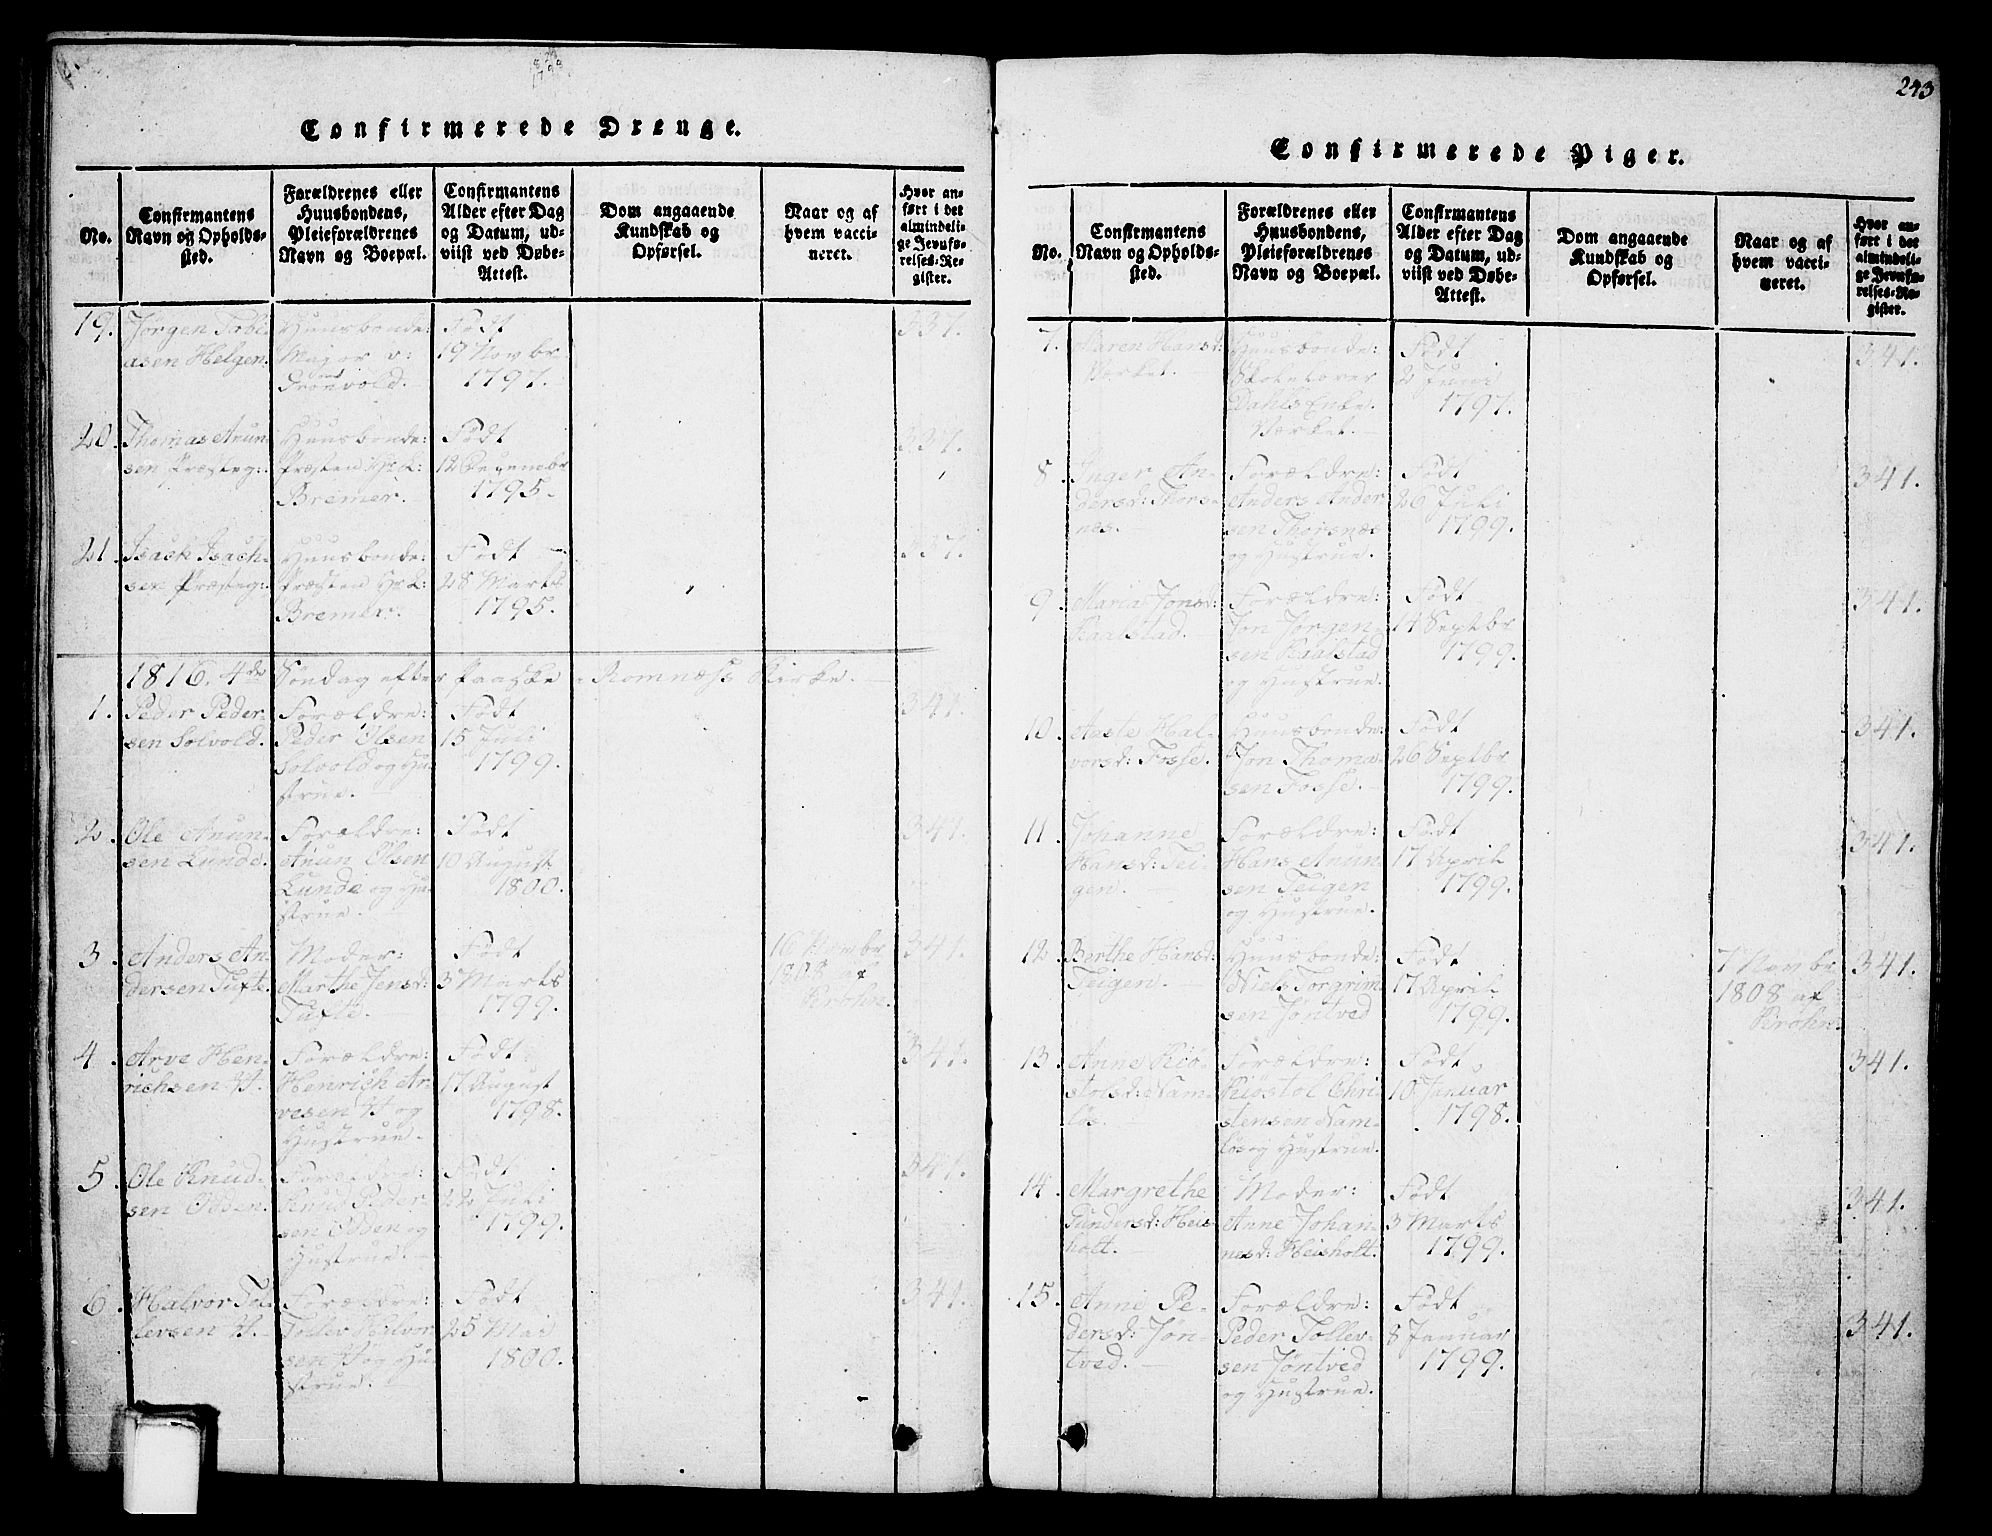 Confirmerede Drenge.
No.
Confirmantens
Navn og Opholds-
sted.
Forældrenes eller
Huusbondens,
Pleieforældrenes
Navn og Boepæl.
Confirmantens
Alder efter Dag
og Datum, ud-
viist ved Døbe-
Attest.
Dom angaaende
Kundskab og
Opførsel.
Naar og af
hvem vacci-
neret.
Hvor an-
ført i det
almindeli-
ge Jevnfø-
relses-Re-
gister.
19.
Jørgen Tobi-
asen Helgen.
Huusbonde:
Major v:
Grönvold.
Født
19 Novbr
1797.
337.
20.
Thomas Anun-
sen Præsteg:
Huusbonde:
Præsten Hr L:
Bremer.
Født
12 Decembr
1795.
337.
21.
Isack Isach-
sen Præsteg:
Huusbonde:
Præsten Hr L:
Bremer.
Født
28 Marts
1795.
337.
1816. 4de Søndag efter Paaske - Romnæss Kirke.
1.
Peder Peder-
sen Solvold.
Forældre:
Peder Olsen
Solvold og Hu-
strue.
Født
15 Juli
1799.
341.
2.
Ole Anun-
sen Lunde.
Forældre:
Anun Olsen
Lunde og Hu-
strue.
Født
10 August
1800.
341.
3.
Anders An-
dersen Tufte.
Moder:
Marthe Jensd:
Tufte.
Født
3 Marts
1799.
1808 af
Krohn.
341.
4.
Arve Hen-
richsen H.
Forældre:
Henrich Ar-
vesen H og
Hustrue.
Født
17 August
1798.
341.
5.
Ole Knud-
sen Odden.
Forældre:
Knud Peder-
sen Odden og
Hustrue.
Født
22 Juli
1799.
341.
6.
Halvor Tol-
levsen H.
Forældre:
Tollev Halvor-
sen H og Hu-
strue.
Født
25 Mai
1800.
341.
243
Confirmerede Piger.
No.
Confirmantens
Navn og Opholds-
sted.
Forældrenes eller
Huusbondens,
Pleieforældrenes
Navn og Boepæl.
Confirmantens
Alder efter Dag
og Datum, ud-
viist ved Døbe-
Attest.
Dom angaaende
Kundskab og
Opførsel.
Naar og af
hvem vacci-
neret.
Hvor an-
ført i det
almindeli-
ge Jevnfø-
relses-Re-
gister.
7.
Maren Hansd:
Værket.
Huusbonde:
Skolelærer
Dahls Enke.
Værket.
Født
2 Juni
1797.
341.
8.
Inger An-
dersd: Thors-
næs.
Forældre:
Anders Ander-
sen Thorsnæs
og Hustrue.
Født
26 Juli
1799.
341.
9.
Maria Jonsd:
Kaalstad.
Forældre:
Jon Jørgen-
sen Kaalstad
og Hustrue.
Født
14 Septbr
1799.
341.
10.
Aaste Hal-
vorsd: Fosse.
Huusbonde:
Jon Thoma-
sen Fosse.
Født
26 Septbr
1799.
341.
11.
Johanne
Hansd: Tei-
gen.
Forældre:
Hans Anun-
sen Teigen
og Hustrue.
Født
17 April
1799.
341.
12.
Berthe Hansd:
Teigen.
Huusbonde:
Niels Torgrim-
sen Jøntved
Født
17 April
1799.
7 Novbr
1808 af
Krohn.
341.
13.
Anne Kiö-
stolsd: Nam-
løs.
Forældre:
Kiöstol Chri-
stensen Nam-
løs og Hustrue.
Født
10 Januar
1798.
341.
14.
Margrethe
Gundersd: Heis-
holt.
Moder:
Anne Johan-
nesd: Heisholt.
Født
3 Marts
1799.
341.
15.
Anne Pe-
dersd: Jøn-
tved.
Forældre:
Peder Tollev-
sen Jøntved
og Hustrue.
Født
8 Januar
1799.
341.